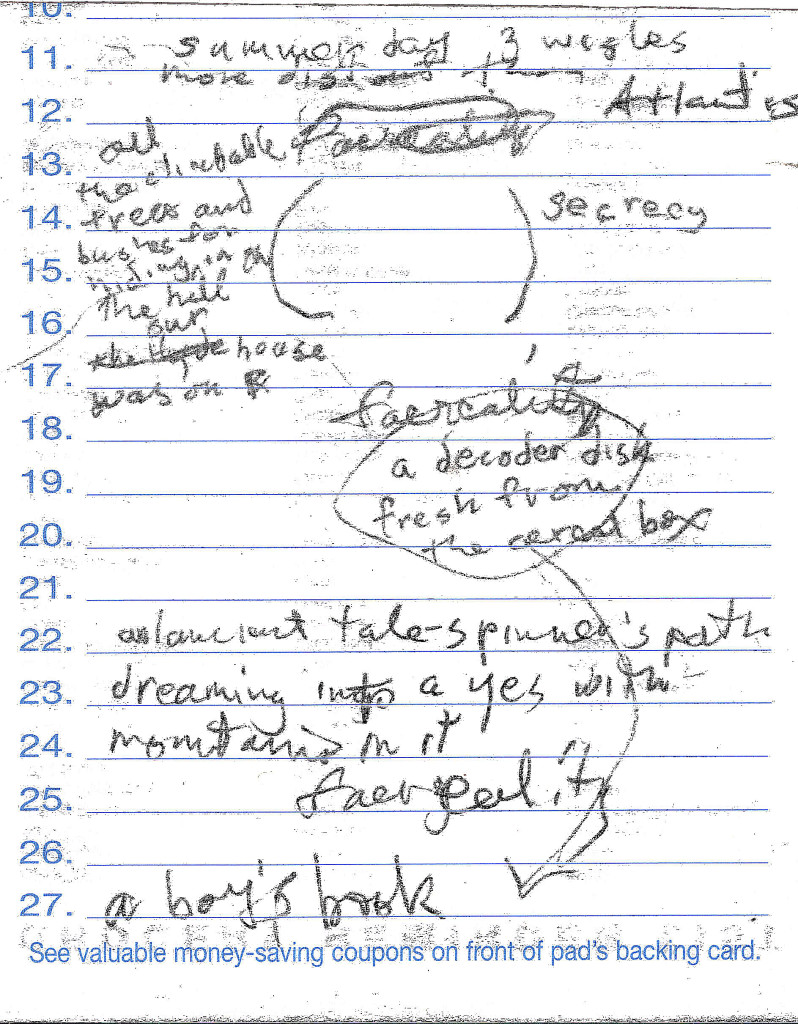 10.
11. summer day 3
more
12. Atlantis
all
13. the climbable
14. trees and secrecy
bushes for
15. hiding in on
the hill
16. our
house
17. was on
faereality
18.
a decoder disk
19.
fresh from
20. the cereal box
21.
22. an ancient tale-spinner's path
23. dreaming into a yes with
24. mountains in it
25. faereality
26.
27. a boy's book
See valuable money-saving coupons on front of pad's backing card.